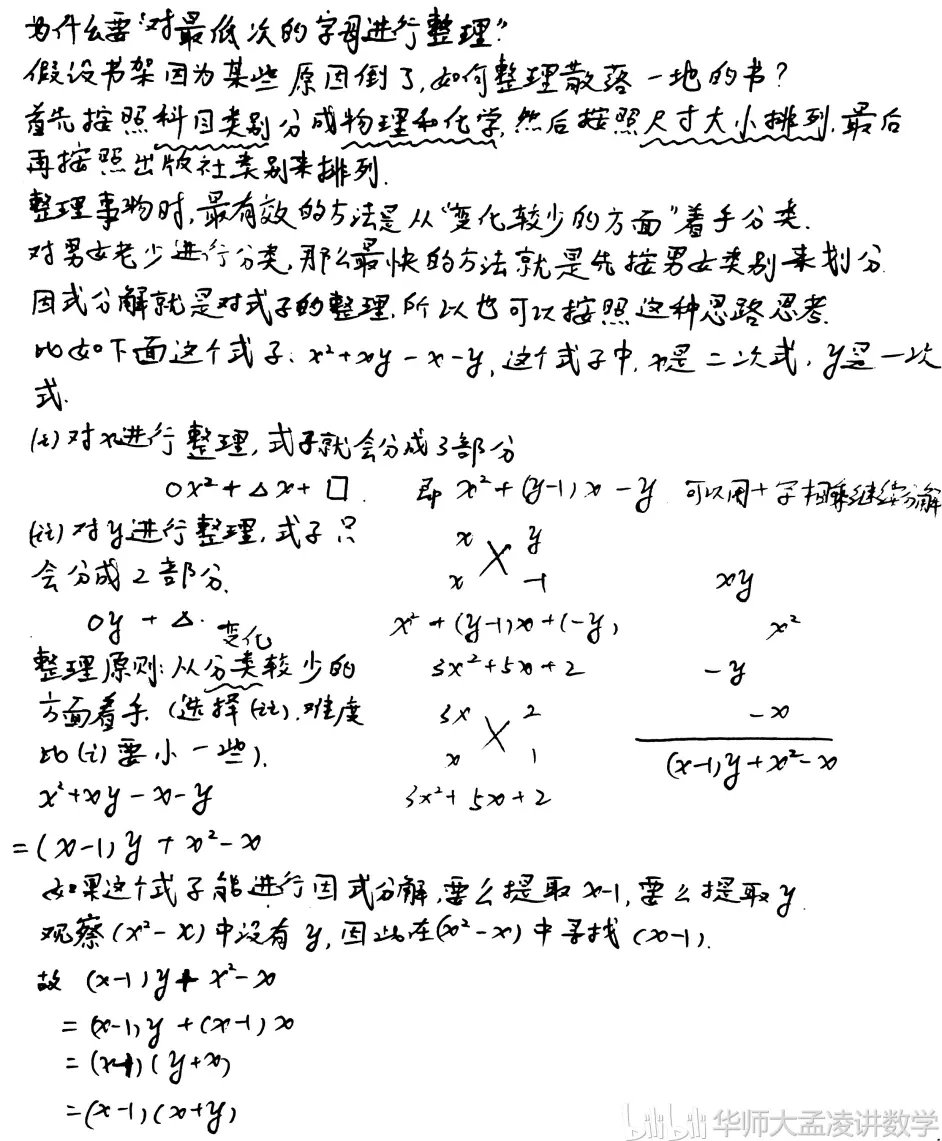 为什么要"对最低次的字母进行整理"?
假设书架因为某些原因倒了,如何整理散落一地的书?
首先按照科目类别分成物理和化学,然后按照尺寸大小排列,最后
再按照出版社类别来排列.
整理事物时,最有效的方法是从"变化较少的方面"着手分类.
对男女老少进行分类,那么最快的方法就是先按男女类别来划分.
因式分解就是对式子的整理,所以也可以按照这种思路思考.
比如下面这个式子、x²+xy-x-y,这个式子中,x是二次式,y是一次
式.
(i)对x进行整理,式子就会分成3部分
Ox²+△x+□. 即 x²+(y-1)x-y 可以用十字相乘继续分解
(ii)对y进行整理,式子只
x y
会分成2部分.
x -1
xy
Oy+△.
x²+(y-1)x+(-y)
x²
变化
整理原则:从分类较少的
3x²+5x+2
-y
方面着手.(选择(ii),难度
3x 2
-x
比(i)要小一些).
x 1
(x-1)y+x²-x
x²+xy-x-y
3x²+5x+2
=(x-1)y+x²-x
如果这个式子能进行因式分解,要么提取x-1,要么提取y
观察(x²-x)中没有y,因此在(x²-x)中寻找(x-1).
故 (x-1)y+x²-x
=(x-1)y+(x-1)x
=(x-1)(y+x)
=(x-1)(x+y)
bilibili 华师大孟凌讲数学